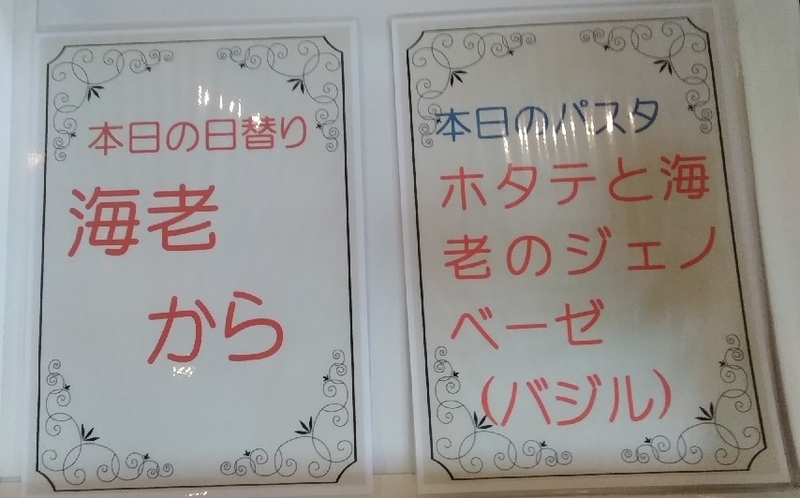 本日の日替り
海老
から
本日のパスタ
ホタテと海
老のジェノ
ベーゼ
(バジル)